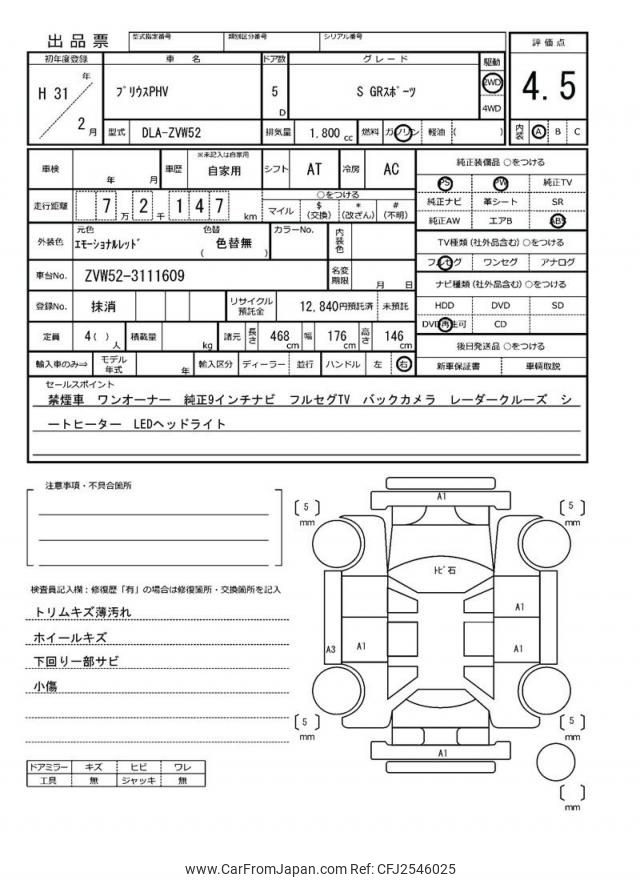 出品票
型式指定番号 類別区分番号 シリアル番号
評価点
4.5
内装 A B C
初年度登録 車名 ドア数 グレード 駆動
H 31 年 2 月
ﾌﾟﾘｳｽPHV 5 D S GRｽﾎﾟｰﾂ 2WD
4WD
型式 DLA-ZVW52 排気量 1,800 cc 燃料 ガソリン 軽油 ( )
車検 年 月 車歴 ※未記入は自家用 自家用 シフト AT 冷房 AC
走行距離 7 万 2 千 1 4 7 km
○をつける
マイル $(交換) *(改ざん) #(不明)
外装色 元色 ｴﾓｰｼｮﾅﾙﾚｯﾄﾞ 色替 ( 色替無 ) カラーNo. 内装色
車台No. ZVW52-3111609 名変期限 月 日
登録No. 抹消 リサイクル預託金 12,840円預託済 未預託
定員 4( ) 人 積載量 kg 諸元 長さ 468 cm 幅 176 cm 高さ 146 cm
輸入車のみ⇒ モデル年式 年 輸入区分 ディーラー 並行 ハンドル 左 右
純正装備品 ○をつける
PS PW 純正TV
純正ナビ 革シート SR
純正AW エアB ABS
TV種類 (社外品含む) ○をつける
フルセグ ワンセグ アナログ
ナビ種類 (社外品含む) ○をつける
HDD DVD SD
DVD再生可 CD
後日発送品 ○をつける
新車保証書 車輌取説
セールスポイント
禁煙車 ワンオーナー 純正9インチナビ フルセグTV バックカメラ レーダークルーズ シ
ートヒーター LEDヘッドライト
注意事項・不具合箇所
検査員記入欄：修復歴「有」の場合は修復箇所・交換箇所を記入
トリムキズ薄汚れ
ホイールキズ
下回り一部サビ
小傷
ドアミラー キズ ヒビ ワレ
工具 無 ジャッキ 無
A1
5 mm
5 mm
ﾄﾋﾞ石
A1
A3 A1 A1
5 mm
5 mm
A1
mm
www.CarFromJapan.com Ref: CFJ2546025